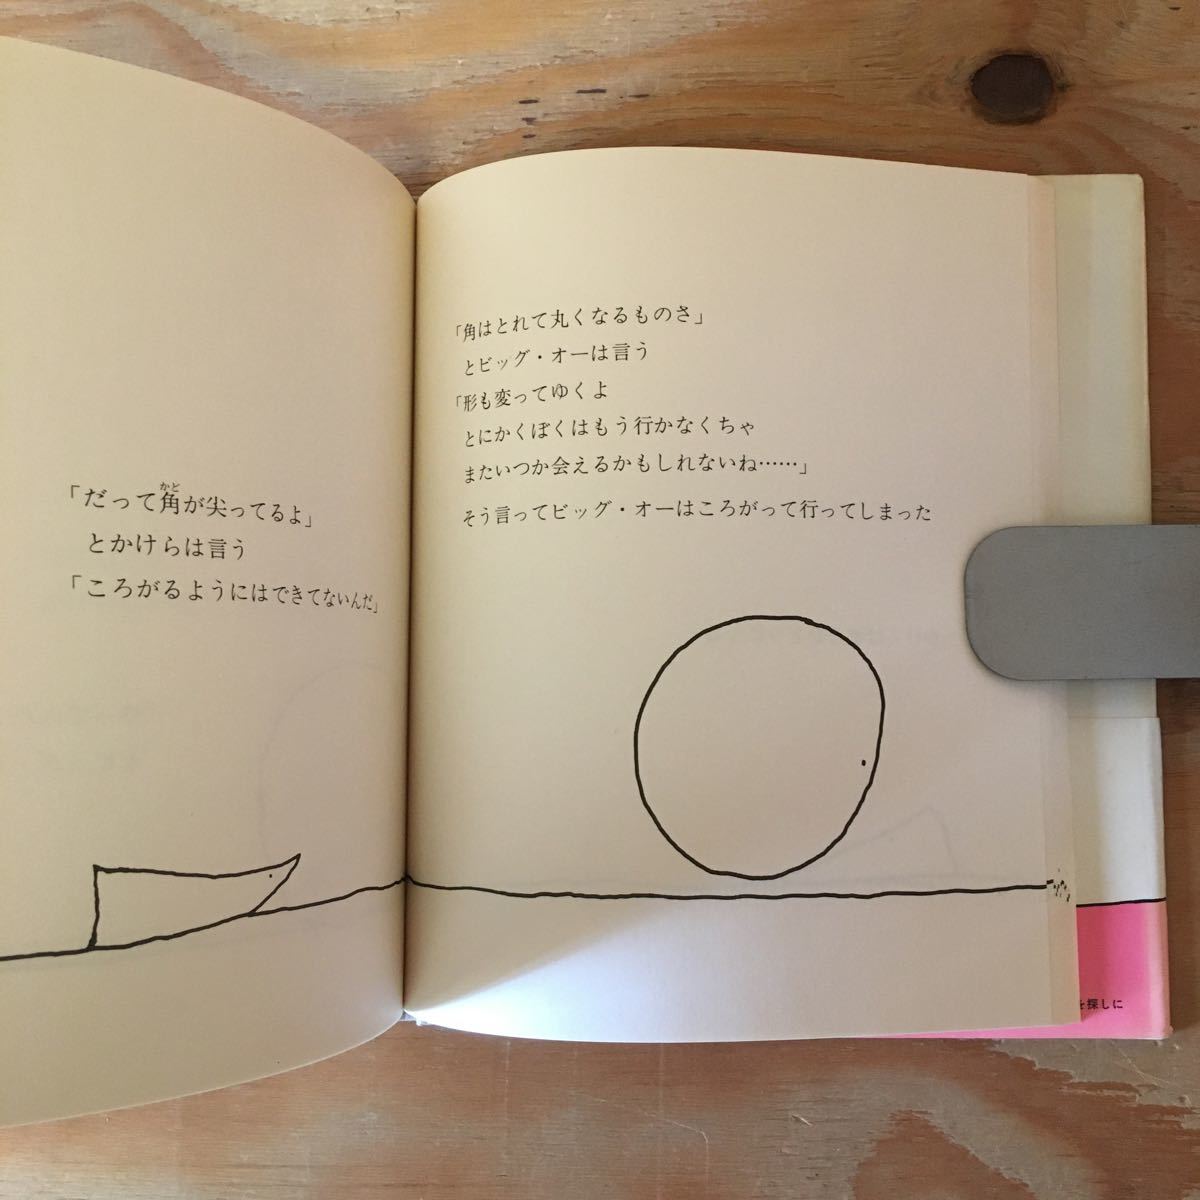 「だって角が尖ってるよ」
かど
とかけらは言う
「ころがるようにはできてないんだ」
「角はとれて丸くなるものさ」
とビッグ・オーは言う
「形も変ってゆくよ
とにかくぼくはもう行かなくちゃ
またいつか会えるかもしれないね……」
そう言ってビッグ・オーはころがって行ってしまった
を探しに